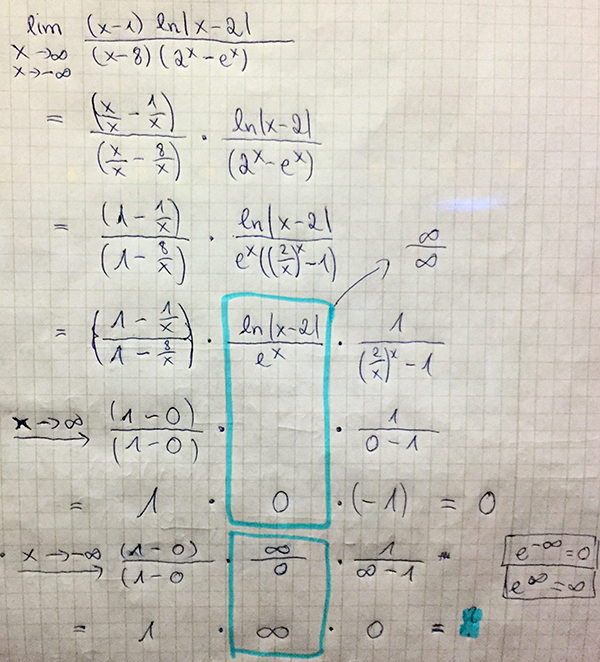 lim (x-1) ln|x-2| / (x-8)(2^x - e^x)
x→∞
x→-∞
= (x/x - 1/x) / (x/x - 8/x) · ln|x-2| / (2^x - e^x)
= (1 - 1/x) / (1 - 8/x) · ln|x-2| / e^x((2/x)^x - 1) ∞/∞
= (1 - 1/x / 1 - 8/x) · ln|x-2| / e^x · 1 / (2/x)^x - 1
x→∞ (1-0) / (1-0) · · 1 / 0-1
= 1 · 0 · (-1) = 0
· x→-∞ (1-0) / (1-0 · ∞/0 · 1 / ∞-1 = e^-∞ = 0
e^∞ = ∞
= 1 · ∞ · 0 =